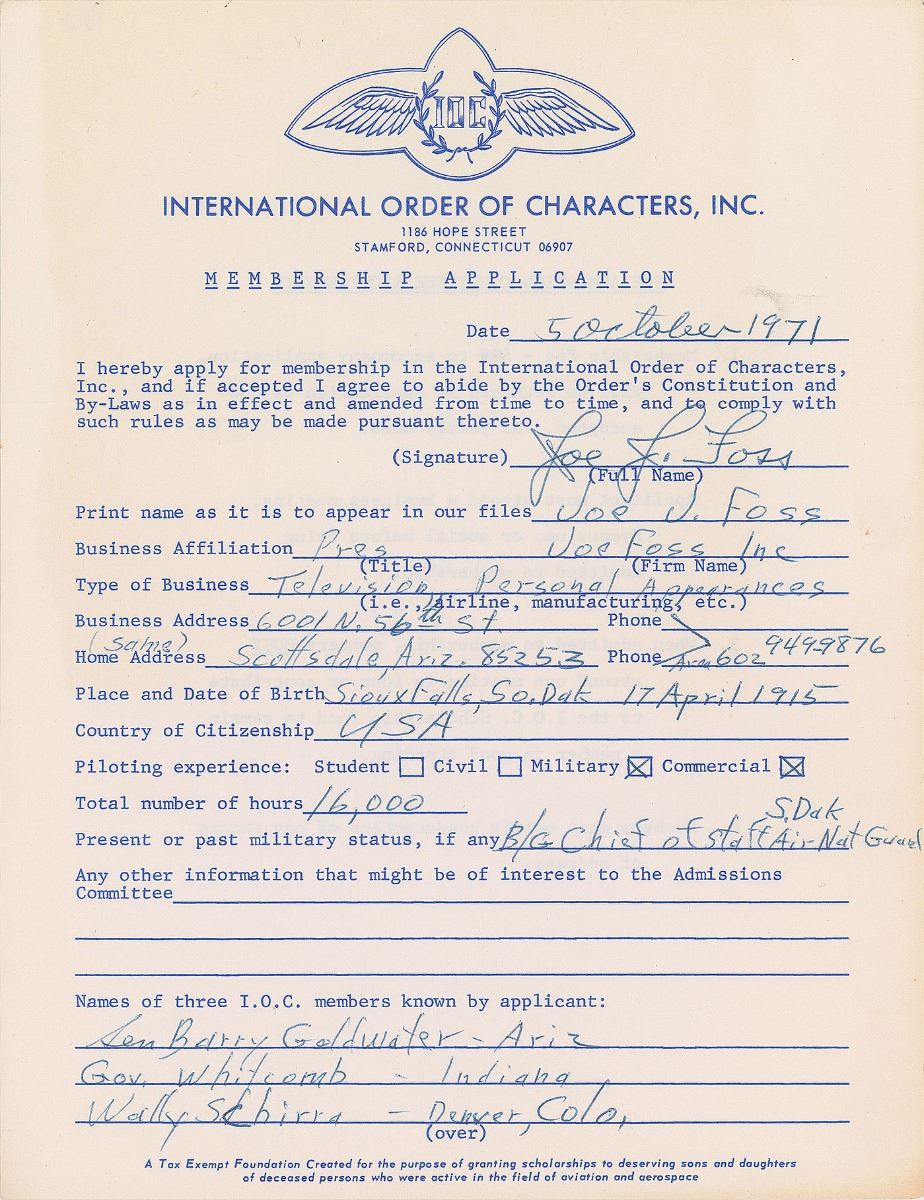 IOC
INTERNATIONAL ORDER OF CHARACTERS, INC.
1186 HOPE STREET
STAMFORD, CONNECTICUT 06907
MEMBERSHIP APPLICATION
Date 5 October 1971
I hereby apply for membership in the International Order of Characters,
Inc., and if accepted I agree to abide by the Order's Constitution and
By-Laws as in effect and amended from time to time, and to comply with
such rules as may be made pursuant thereto.
(Signature) Joe J. Foss
(Full Name)
Print name as it is to appear in our files Joe J. Foss
Business Affiliation Pres Joe Foss Inc
(Title) (Firm Name)
Type of Business Television, Personal Appearances
(i.e., airline, manufacturing, etc.)
Business Address 6001 N. 56th St. Phone
(same)
Home Address Scottsdale, Ariz. 85253 Phone Area 602 949-9876
Place and Date of Birth Sioux Falls, So. Dak 17 April 1915
Country of Citizenship USA
Piloting experience: Student Civil Military Commercial
Total number of hours 16,000
S. Dak
Present or past military status, if any B/G Chief of staff Air Nat Guard
Any other information that might be of interest to the Admissions
Committee
Names of three I.O.C. members known by applicant:
Sen Barry Goldwater - Ariz
Gov. Whitcomb - Indiana
Wally Schirra - Denver, Colo,
(over)
A Tax Exempt Foundation Created for the purpose of granting scholarships to deserving sons and daughters
of deceased persons who were active in the field of aviation and aerospace